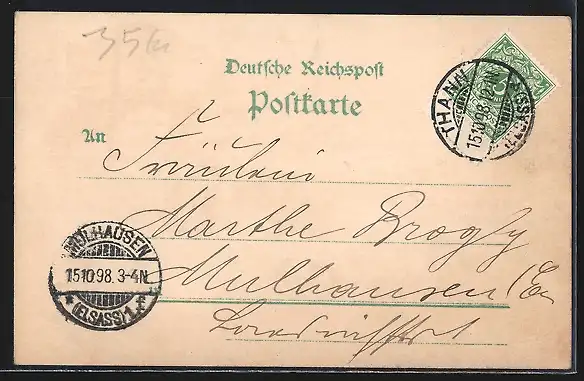 35kr
Deutsche Reichspost
Postkarte
An
Fräulein
Marthe Brogly
Mulhausen (Els
THANN
15.10.98. 2-
(ELSASS)
MÜLHAUSEN
15.10.98. 3-4N.
* (ELSASS) 1. f